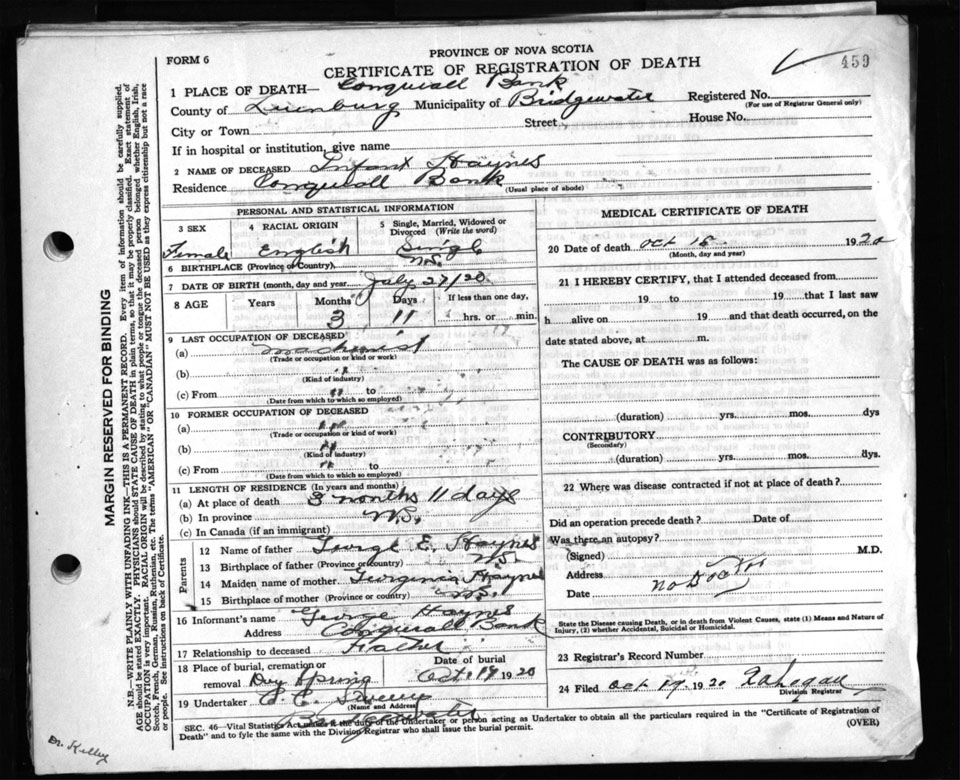 PROVINCE OF NOVA SCOTIA
FORM 6
CERTIFICATE OF REGISTRATION OF DEATH
459
1 PLACE OF DEATH— Conquerall Bank
Registered No.
(For use of Registrar General only)
County of Lunenburg Municipality of Bridgewater
City or Town Street House No.
If in hospital or institution, give name
2 NAME OF DECEASED Infant Haynes
Residence Conquerall Bank
(Usual place of abode)
PERSONAL AND STATISTICAL INFORMATION
3 SEX Female
4 RACIAL ORIGIN English
5 Single, Married, Widowed or Divorced (Write the word) Single
6 BIRTHPLACE (Province or Country) N.S.
7 DATE OF BIRTH (month, day and year) July 27/20
8 AGE Years Months Days If less than one day,
3 11 hrs. or min.
9 LAST OCCUPATION OF DECEASED
(a) Machinist
(Trade or occupation or kind or work)
(b) "
(Kind of industry)
(c) From " to
(Date from which to which so employed)
10 FORMER OCCUPATION OF DECEASED
(a)
(Trade or occupation or kind of work)
(b)
(Kind of industry)
(c) From to
(Date from which to which so employed)
11 LENGTH OF RESIDENCE (In years and months)
(a) At place of death 3 months 11 days
(b) In province N.S.
(c) In Canada (if an immigrant)
Parents
12 Name of father George E. Haynes
13 Birthplace of father (Province or country) N.S.
14 Maiden name of mother Haynes
15 Birthplace of mother (Province or country) N.S.
16 Informant's name George Haynes
Address Conquerall Bank
17 Relationship to deceased Father
18 Place of burial, cremation or removal Date of burial
Dey Spring Oct. 19 1920
19 Undertaker
(Name and Address)
MEDICAL CERTIFICATE OF DEATH
20 Date of death Oct 15 1920
(Month, day and year)
21 I HEREBY CERTIFY, that I attended deceased from
19 to 19 that I last saw
h alive on 19 and that death occurred, on the
date stated above, at m.
The CAUSE OF DEATH was as follows:
(duration) yrs. mos. dys
CONTRIBUTORY
(Secondary)
(duration) yrs. mos. dys.
22 Where was disease contracted if not at place of death?
Did an operation precede death? Date of
Was there an autopsy?
(Signed) M.D.
Address No Doctor
Date
State the Disease causing Death, or in death from Violent Causes, state (1) Means and Nature of
Injury, (2) whether Accidental, Suicidal or Homicidal.
23 Registrar's Record Number
24 Filed Oct 19 1920
Division Registrar
SEC. 46—Vital Statistics Act is the duty of the Undertaker or person acting as Undertaker to obtain all the particulars required in the "Certificate of Registration of
Death" and to fyle the same with the Division Registrar who shall issue the burial permit.
(OVER)
MARGIN RESERVED FOR BINDING
N.B.—WRITE PLAINLY WITH UNFADING INK—THIS IS A PERMANENT RECORD. Every item of information should be carefully supplied.
AGE should be stated EXACTLY. PHYSICIANS should STATE CAUSE OF DEATH in plain terms, so that it may be properly classified. Exact statement of
OCCUPATION is very important. RACIAL ORIGIN will be described by stating to what people or tongue the deceased person belonged whether English, Irish,
Scotch, French, German, Russian, Ruthenian, etc. The terms "AMERICAN" or "CANADIAN" MUST NOT BE USED as they express citizenship but not a race
or people. See instructions on back of Certificate.
Dr. Kelley